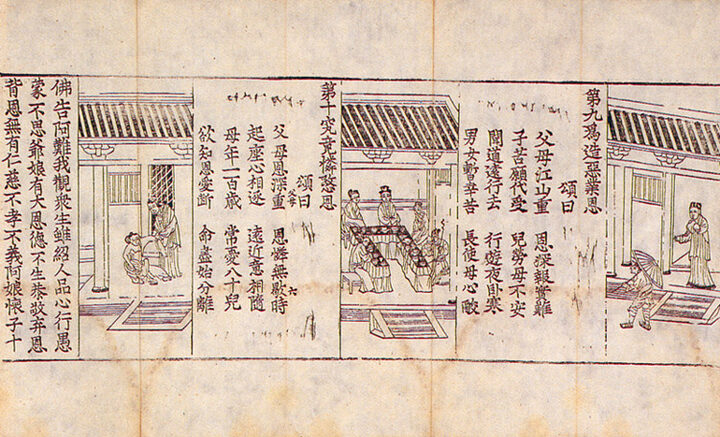 第九爲造惡業恩
頌曰
父母江山重　恩深報實難
子苦願代受　兒勞母不安
聞道遠行去　行遊夜卧寒
男女暫辛苦　長使母心酸
第十究竟憐愍恩
頌曰
父母恩深重　恩憐無歇時
六
起座心相逐　遠近意相隨
母年一百歲　常憂八十兒
欲知恩愛斷　命盡始分離
佛告阿難我觀衆生雖紹人品心行愚
蒙不思爺娘有大恩德不生恭敬弃恩
背恩無有仁慈不孝不義阿娘懷子十